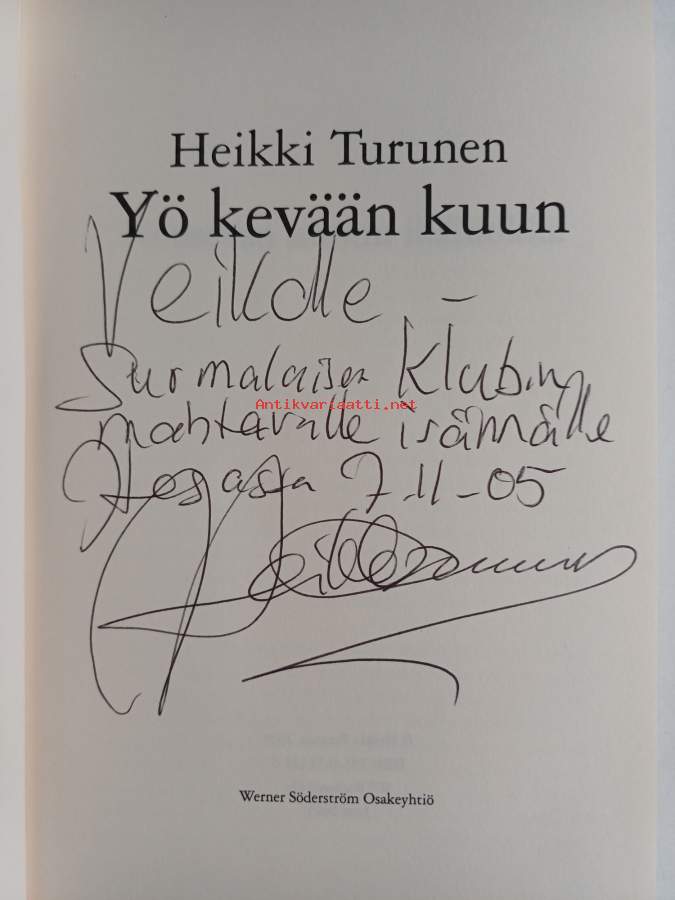 Heikki Turunen
Yö kevään kuun
Veikolle –
Suomalaisen Klubin
Antikvariaatti.net
mahtavalle isännälle
7.11-05
Werner Söderström Osakeyhtiö